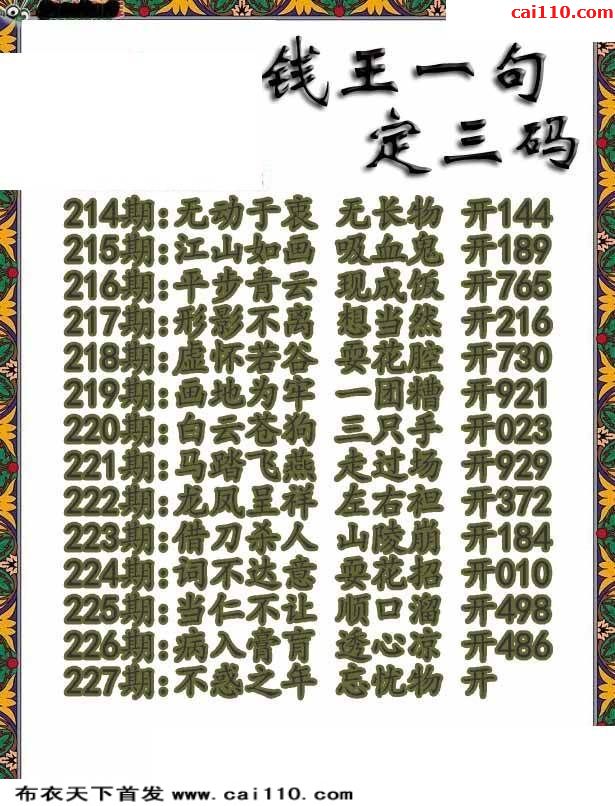 cai110.com
钱王一句
定三码
214期:无动于衷 无长物 开144
215期:江山如画 吸血鬼 开189
216期:平步青云 现成饭 开765
217期:形影不离 想当然 开216
218期:虚怀若谷 耍花腔 开730
219期:画地为牢 一团糟 开921
220期:白云苍狗 三只手 开023
221期:马踏飞燕 走过场 开929
222期:龙凤呈祥 左右袒 开372
223期:借刀杀人 山陵崩 开184
224期:词不达意 耍花招 开010
225期:当仁不让 顺口溜 开498
226期:病入膏肓 透心凉 开486
227期:不惑之年 忘忧物 开
布衣天下首发 www.cai110.com